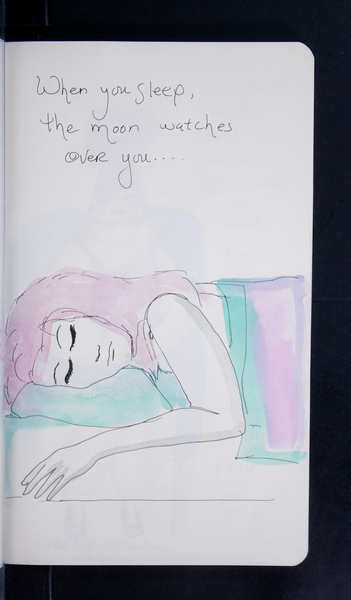 When you sleep,
the moon watches
over you....